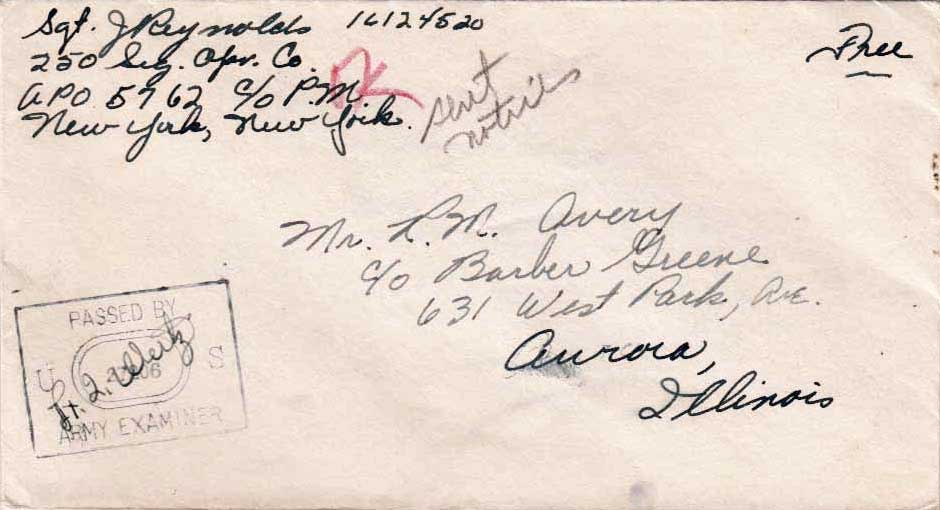 Sgt. J Reynolds 16124520
250 Sig. Opr. Co.
APO 5762 c/o P.M.
New York, New York.
Free
sent
Mr. R. M. Avery
c/o Barber Greene
631 West Park, Ave.
Aurora,
Illinois
PASSED BY
U S
ARMY EXAMINER